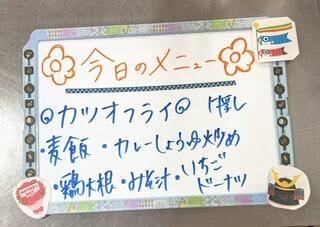 今日のメニュー
◎カツオフライ◎ 1推し
・麦飯・カレーしょうゆ炒め
・鶏大根・みそ汁・いちご
ドーナツ